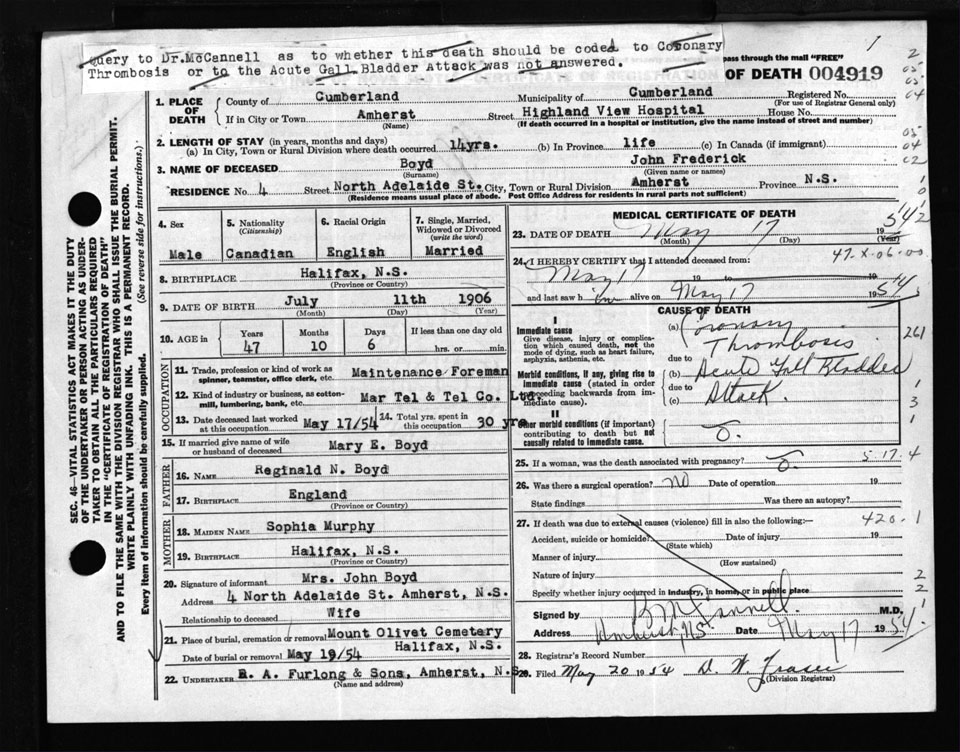 Query to Dr.McCannell as to whether this death should be coded to Coronary
Thrombosis or to the Acute Gall Bladder Attack was not answered.
1
pass through the mail "FREE"
OF DEATH 004919
2
05
05
04
05
04
02
1
0
1. PLACE OF DEATH
County of Cumberland Municipality of Cumberland Registered No.
(For use of Registrar General only)
If in City or Town Amherst Street Highland View Hospital House No.
(Name) (If death occurred in a hospital or institution, give the name instead of street and number)
2. LENGTH OF STAY (in years, months and days)
(a) In City, Town or Rural Division where death occurred 14yrs. (b) In Province life (c) In Canada (if immigrant)
3. NAME OF DECEASED Boyd John Frederick
(Surname) (Given name or names)
RESIDENCE No. 4 Street North Adelaide St. City, Town or Rural Division Amherst Province N.S.
(Residence means usual place of abode. Post Office Address for residents in rural parts not sufficient)
SEC. 46—VITAL STATISTICS ACT MAKES IT THE DUTY
OF THE UNDERTAKER OR PERSON ACTING AS UNDER-
TAKER TO OBTAIN ALL THE PARTICULARS REQUIRED
IN THE "CERTIFICATE OF REGISTRATION OF DEATH"
AND TO FILE THE SAME WITH THE DIVISION REGISTRAR WHO SHALL ISSUE THE BURIAL PERMIT.
WRITE PLAINLY WITH UNFADING INK. THIS IS A PERMANENT RECORD.
Every item of information should be carefully supplied. (See reverse side for instructions.)
4. Sex
Male
5. Nationality
(Citizenship)
Canadian
6. Racial Origin
English
7. Single, Married,
Widowed or Divorced
(write the word)
Married
8. BIRTHPLACE Halifax, N.S.
(Province or Country)
9. DATE OF BIRTH July 11th 1906
(Month) (Day) (Year)
10. AGE in
Years
47
Months
10
Days
6
If less than one day old
hrs. or min.
OCCUPATION
11. Trade, profession or kind of work as
spinner, teamster, office clerk, etc. Maintenance Foreman
12. Kind of industry or business, as cotton-
mill, lumbering, bank, etc. Mar Tel & Tel Co. Ltd.
13. Date deceased last worked
at this occupation May 17/54
14. Total yrs. spent in
this occupation 30 yrs
15. If married give name of wife
or husband of deceased Mary E. Boyd
FATHER
16. Name Reginald N. Boyd
17. Birthplace England
(Province or Country)
MOTHER
18. Maiden Name Sophia Murphy
19. Birthplace Halifax, N.S.
(Province or Country)
20. Signature of informant Mrs. John Boyd
Address 4 North Adelaide St. Amherst, N.S.
Relationship to deceased Wife
21. Place of burial, cremation or removal Mount Olivet Cemetery
Date of burial or removal May 19/54 Halifax, N.S.
22. Undertaker R. A. Furlong & Sons, Amherst, N.S.
(Name and address)
MEDICAL CERTIFICATE OF DEATH
23. DATE OF DEATH May 17 1954
(Month) (Day) (Year)
47-X-06-00
24. I HEREBY CERTIFY that I attended deceased from:
May 17 19 to 19
and last saw him alive on May 17 1954
CAUSE OF DEATH
I
Immediate cause
Give disease, injury or complica-
tion which caused death, not the
mode of dying, such as heart failure,
asphyxia, asthenia, etc.
Morbid conditions, if any, giving rise to
immediate cause (stated in order
proceeding backwards from im-
mediate cause).
II
Other morbid conditions (if important)
contributing to death but not
causally related to immediate cause.
(a) Coronary
Thrombosis
due to
(b) Acute Gall Bladder
due to
(c) Attack
261
1
3
1
25. If a woman, was the death associated with pregnancy?
5-17-4
26. Was there a surgical operation? NO Date of operation 19
State findings Was there an autopsy?
27. If death was due to external causes (violence) fill in also the following:—
420.1
Accident, suicide or homicide? Date of injury 19
(State which)
Manner of injury
(How sustained)
Nature of injury
Specify whether injury occurred in industry, in home, or in public place
2
2
Signed by M.D.
Address Amherst, NS Date May 17 1954
28. Registrar's Record Number
29. Filed May 20 1954 D. W. Fraser
(Division Registrar)